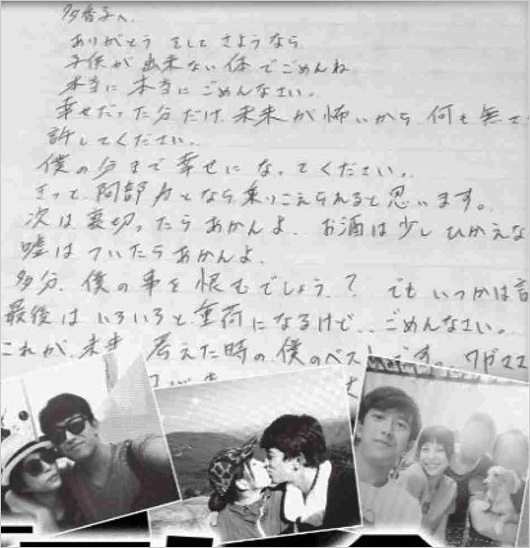 多香子へ
ありがとう そして さようなら
子供が出来ない体でごめんね
本当に 本当に ごめんなさい。
幸せだった分だけ 未来が怖いから 何も無
許してください。
僕の分まで幸せになってください。
きっと、阿部力となら乗りこえられると思います。
次は裏切ったらあかんよ お酒は少しひかえな
嘘はついたらあかんよ
多分、僕の事を恨むでしょう？ でもいつかは
最後はいろいろと重荷になるけど、ごめんなさい。
これが、未来 考えた時の僕のベストです。ワガママ